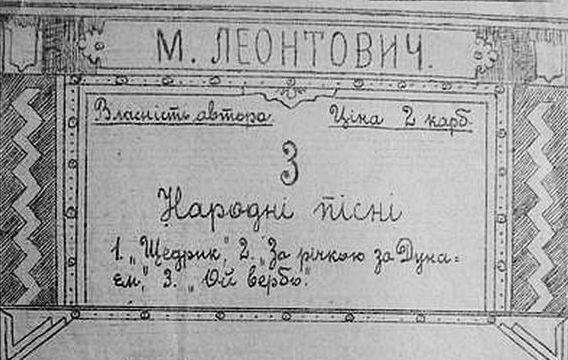 М. ЛЕОНТОВИЧ.
Власність автора. Ціна 2 карб.
3
Народні пісні
1. „Щедрик", 2. „За річкою за Дуна=
єм," 3. „Ой вербо."